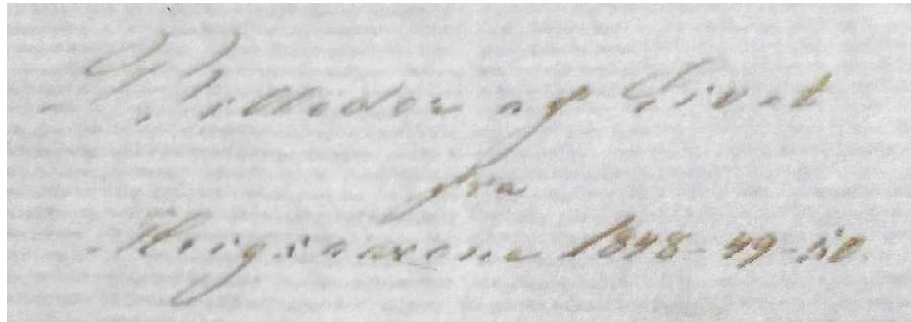 Billeder af Livet
fra
Krigsaarene 1848-49-50.